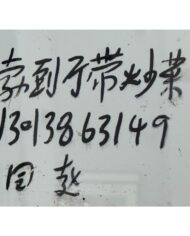 到厅带炒菜
13013863149
回赵